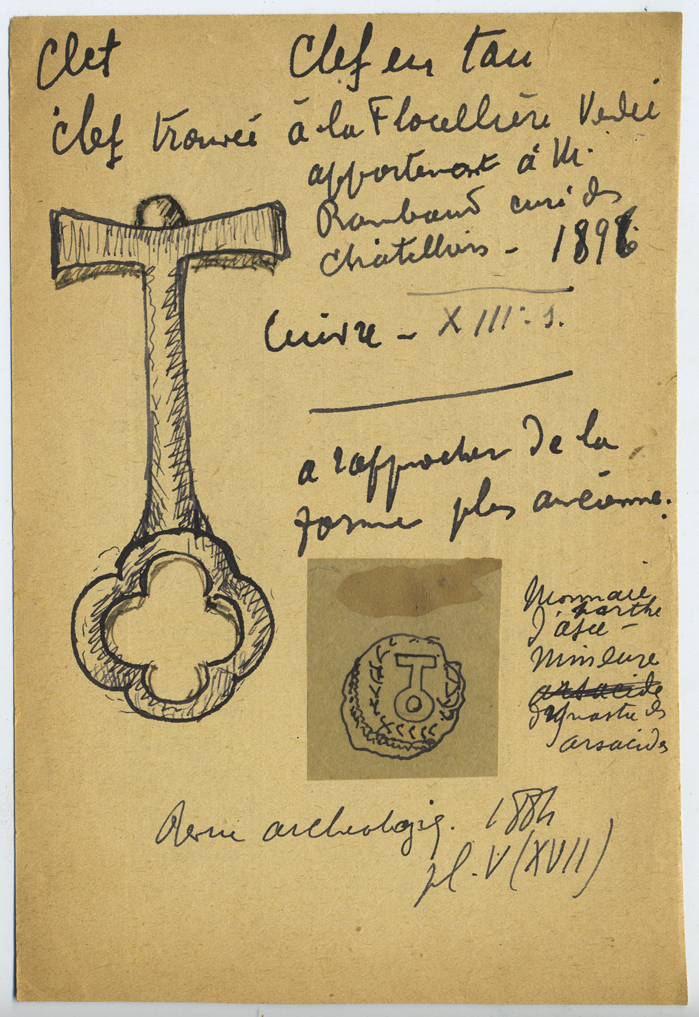 Clef
Clef en tau
Clef trouvée à la Flocellière Vendée
appartenant à M.
Rambaud curé des
Chatelliers - 1896
Cuivre - XIII: s.
a rapprocher de la
forme plus ancienne.
Monnaie
parthe
d'asie -
mineure
arsacide
dynastie des
arsacides
Revue archeologiq. 1884
pl. V (XVII)